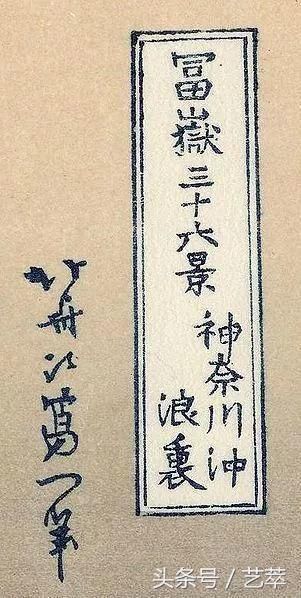 冨嶽三十六景
神奈川沖
浪裏
北斎改爲一筆
头条号 / 艺萃